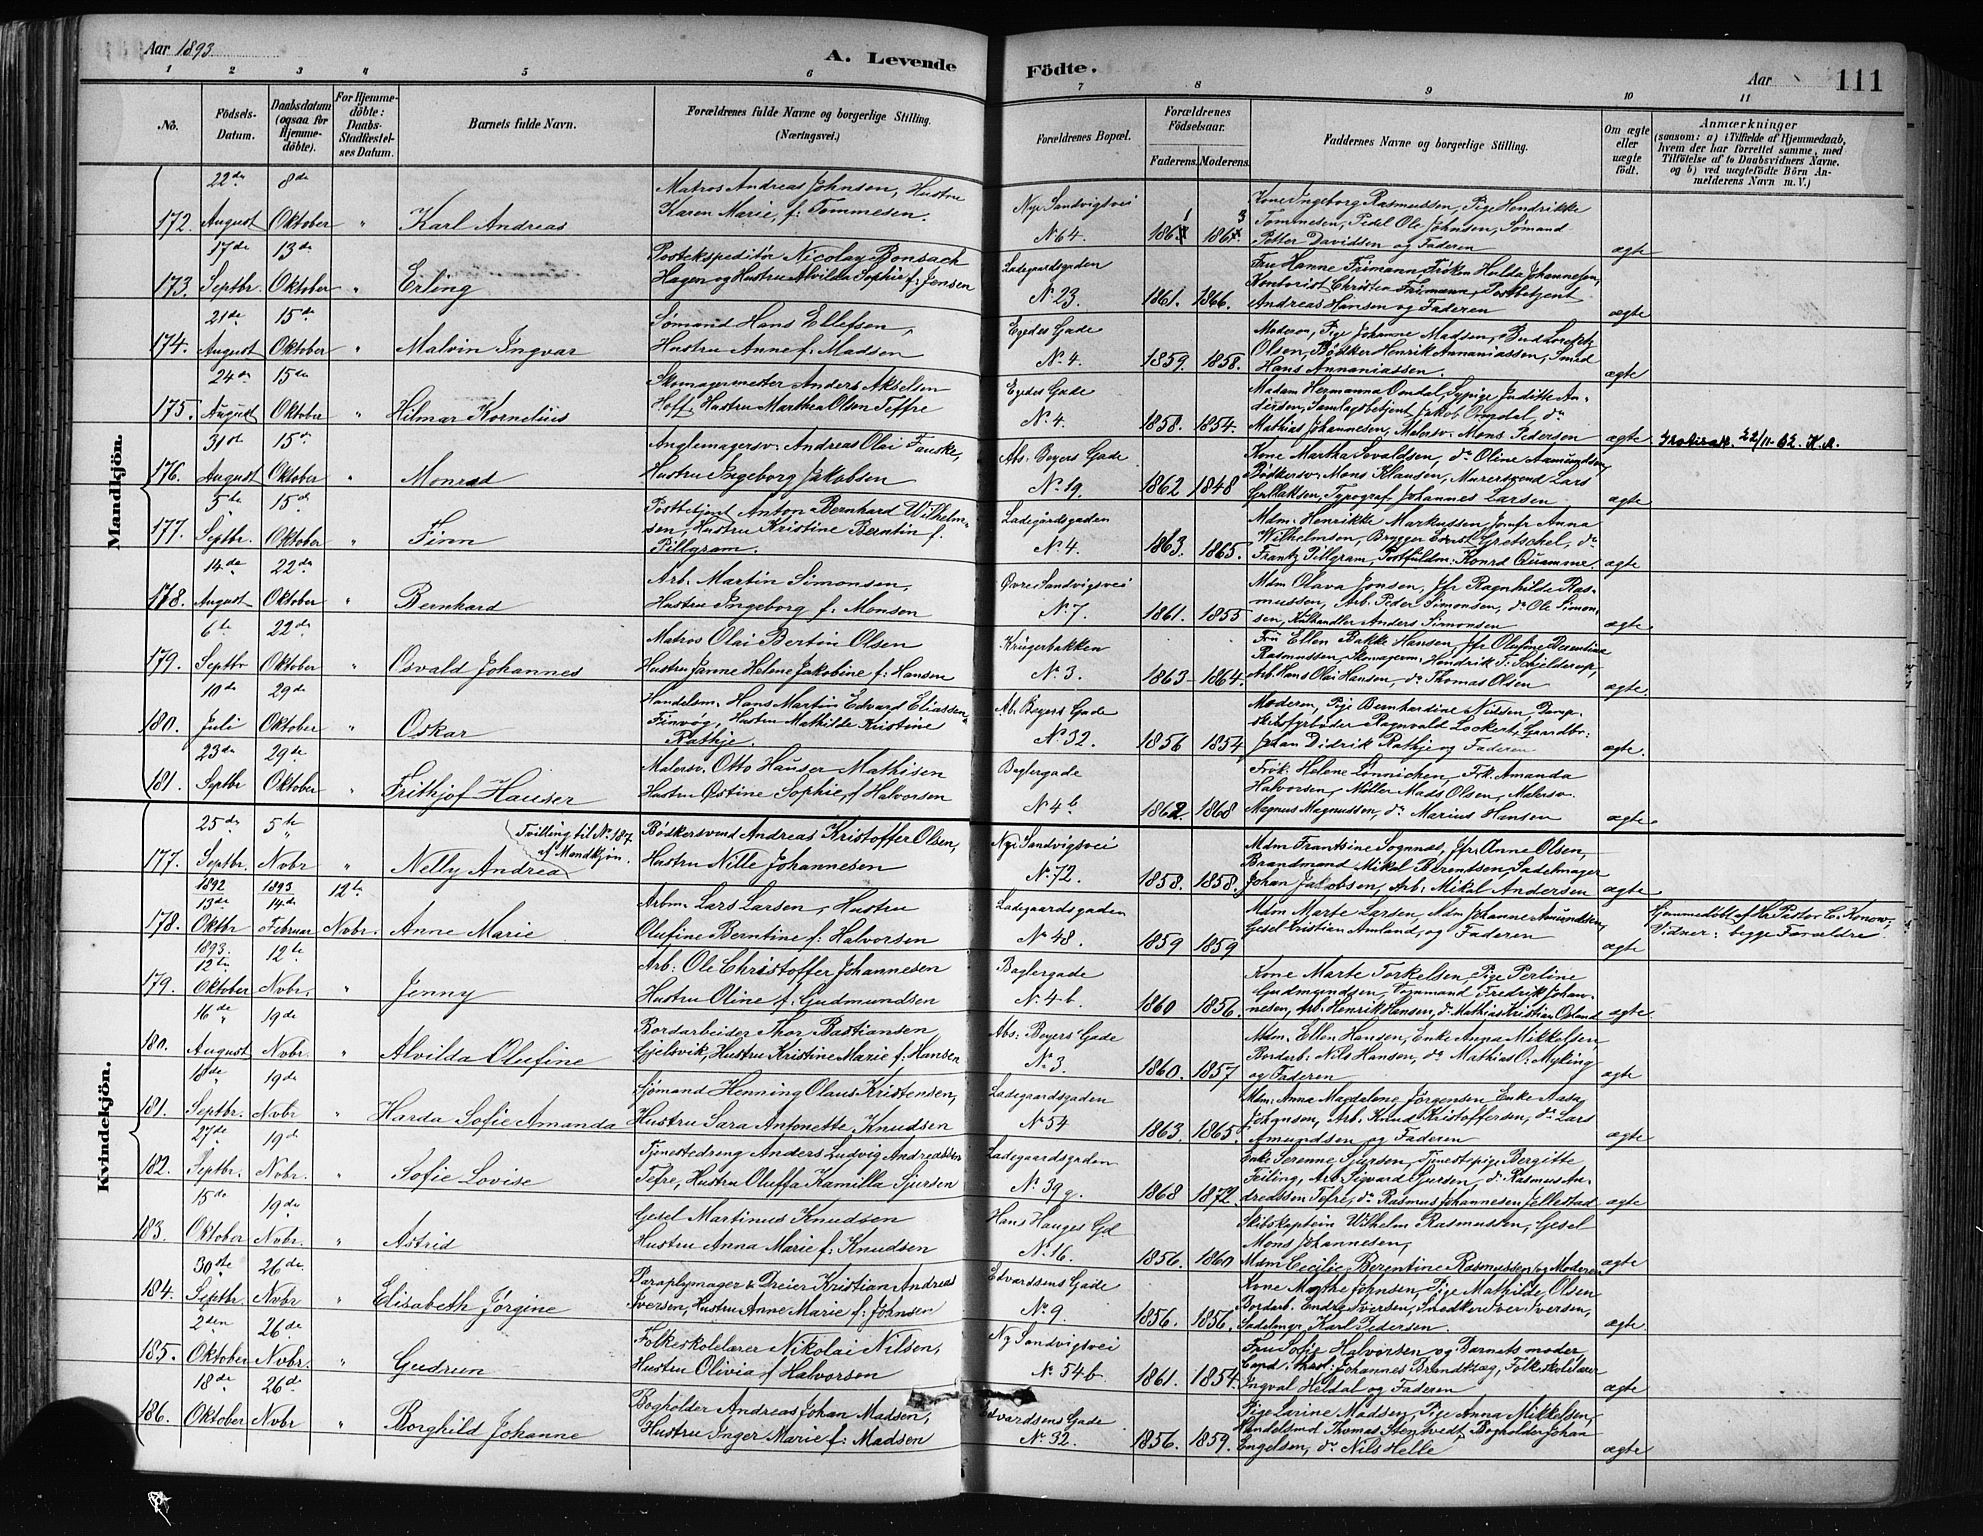 Aar 1893
A. Levende
Födte.
Aar
111
1 2 3 4 5 6 7 8 9 10 11
No.
Födsels-Datum.
Daabsdatum (ogsaa for Hjemme-döbte).
For Hjemme-döbte: Daabs-Stadfæstel-ses Datum.
Barnets fulde Navn.
Forældrenes fulde Navne og borgerlige Stilling.
(Næringsvei.)
Forældrenes Bopæl.
Forældrenes Födselsaar.
Faderens. Moderens.
Faddernes Navne og borgerlige Stilling.
Om ægte eller uægte födt.
Anmærkninger
(saasom: a) i Tilfælde af Hjemmedaab,
hvem der har forrettet samme, med
Tilföielse af to Daabsvidners Navne.
og b) ved uægtefödte Börn An-
melderens Navn m. V.)
Mandkjön.
172. 22de August 8de Oktober " Karl Andreas
Matros Andreas Johnsen, Hustru
Karen Marie, f: Tommesen.
Nye Sandvigsvei
No 64. 1861 1863
Kone Ingeborg Rasmussen, Pige Hendrikke
Tommesen, Pedel Ole Johnsen, Sømand
Petter Davidsen og Faderen
ægte
173. 17de Septbr. 13de Oktober " Erling
Postekspeditør Nicolay Bonsach
Hagen og Hustru Alvilda Sophie f: Jensen
Ladegaardsgaden
No 23. 1861. 1866.
Fru Hanne Frimann, Frøken Hulda Johannesen,
Kontorist Christen Frimann, Postbetjent
Andreas Hansen og Faderen
ægte
174. 21de August 15de Oktober " Malvin Ingvar
Sømand Hans Ellefsen,
Hustru Anne f: Madsen
Egedes Gade
No 4. 1859. 1858.
Moderen, Pige Johanne Madsen, Bud Lorentz
Olsen, Bødker Henrik Annaniassen, Smed
Hans Annaniassen.
ægte
175. 24de August 15de Oktober " Hilmar Kornelius
Skomagermester Anders Akselsen
Hoff, Hustru Marthea Olsen Teffre
Egedes Gade
No 4. 1858. 1854.
Madam Hermanna Omdal, Sypige Juditte An-
dersen, Samlagsbetjent Jakob Omdal, do
Mathias Johannesen, Malersv: Mons Pedersen
ægte 22/11-62. K.A.
176. 31te August 15de Oktober " Monrad
Anglemagersv: Andreas Olai Fauske,
Hustru Ingeborg Jakobsen
Abs: Beyers Gade
No 19. 1862 1848
Kone Martha Sevaldsen, do Oline Aamundsen,
Bødkersv: Mons Klausen, Murersvend Lars
Gullaksen, Typograf Johannes Larsen
ægte
177. 5te Septbr. 15de Oktober " Finn
Postbetjent Anton Bernhard Wilhelm-
sen, Hustru Kristine Berntin f.
Pillgram.
Ladegårdsgaden
No 4. 1863. 1865.
Mdm: Henrikke Markussen, Jomfr Anna
Wilhelmsen, Brygger Ernst Gretschel, do
Frantz Pillgram, Postfuldm: Konrd Quamme
ægte
178. 14de August 22de Oktober " Bernhard
Arb: Martin Simonsen,
Hustru Ingeborg f: Monsen
Øvre Sandvigsvei
No 7. 1861. 1855
Mdm Olava Jonsen, Jfr Ragnhilde Ras-
mussen, Arb: Peder Simonsen, do Ole Simon-
sen, Kulhandler Anders Simonsen
ægte
179. 6te Septbr 22de Oktober " Osvald Johannes
Matros Olai Bertin Olsen
Hustru Janne Helene Jakobine f: Hansen
Krügerbakken
No 3. 1863 1864.
Frøk Ellen Bakke Hansen, Jfr Olufine Berentine
Rasmussen, Skomagerm: Hendrik T. Schjelderup,
Arb. Hans Olai Hansen, do Thomas Olsen
ægte.
180. 10de Juli 29de Oktober " Oskar
Handelsm: Hans Martin Edvard Eliassen
Finvåg, Hustru Mathilde Kristine
Rathje.
Ab: Beyers Gade
No 32. 1856 1854
Moderen, Pige Bernhardine Nielsen, Damp-
skibsfyrbøder Ragnvald Lockert, Gaardbr:
Johan Didrik Rathje og Faderen
ægte.
181. 23de Septbr 29de Oktober " Frithjof Hauser
Malersv: Otto Hauser Mathisen
Hustru Østine Sophie f Halvorsen
Baglergade
No 4 b 1862 1868
Frøk: Helene Lønnichen, Frk. Amanda
Halvorsen, Møller Mads Olsen, Malersv:
Magnus Magnussen, do Marius Hansen
ægte
Kvindekjön.
177. 25de Septbr. 5te Novbr " Nelly Andrea (Tvilling til No 187 af Mandkjøn.)
Bødkersvend Andreas Kristoffer Olsen,
Hustru Nille Johannesen
Nye Sandvigsvei
No 72. 1858. 1858.
Mdm Frantsine Sognnæs, Jfr: Anne Olsen,
Brandmand Mikal Berendsen, Sadelmager
Johan Jakobsen, Arb: Mikal Andersen
ægte
178. 1892 13de Oktbr 1893 14de Februar 12te Novbr. Anne Marie
Arbm: Lars Larsen, Hustru
Olufine Berntine f: Halvorsen
Ladegaardsgaden
No 48. 1859 1859
Mdm Marte Larsen, Mdm Johanne Amundsen,
Gesel Kristien Amland, og Faderen
ægte
Hjemmedøbt af Hr Pastor C. Konow,
Vidner: begge Forældre.
179. 1893. 12te Oktober 12te Nvbr. " Jenny
Arb: Ole Christoffer Johannesen
Hustru Oline f: Gudmundsen
Baglergade
No 4-b. 1860 1856.
Kone Marte Torkelsen, Pige Perline
Gudmundsen, Tømmand Fredrik Johan-
nesen, Arb. Henrik Hansen, do Mathias Kristian Opland
ægte
180. 16de August 19de Nvbr. " Alvilda Olufine
Bordarbeider Thor Bastiansen
Gjelsvik, Hustru Kristine Marie f: Hansen
Abs: Beyers Gade
No 3. 1860. 1857
Mdm: Ellen Hansen, Enke Anna Mikkelsen
Bordarb: Nils Hansen, do Mathias O: Myking
og Faderen
ægte
181. 18de Septbr. 19de Nvbr " Harda Sofie Amanda
Sjömand Henning Olaus Kristensen,
Hustru Sara Antonette Knudsen
Ladegaardsgaden
No 54 1863. 1865.
Mdm: Anna Magdalene Jørgensen Enke Aasa
Johnsen, Arb. Knud Kristoffersen, do Lars
Amundsen og Faderen
ægte
182. 27de Septbr. 19de Nvbr. " Sofie Lovise
Tjenestedreng Anders Ludvig Andreassen
Tefre, Hustru Oluffa Kamilla Sjursen
Ladegaardsgaden
No 39 g. 1868 1872.
Enke Serenne Sjursen, Tjenestepige Bergitte
Feiling, Arb Sigvard Sjursen, do Rasmus An-
dreassen Tefre, do Rasmus Johannesen Jellestad
ægte
183. 15de Oktober 19de Nvbr. " Astrid
Gesel Martinus Knudsen
Hustru Anna Marie f: Knudsen
Hans Hauges Gd
No 16. 1856. 1860
Skibskaptein Wilhelm Rasmussen, Gesel
Mons Johannesen,
Mdm Cecilie Berentine Rasmussen og Moderen
ægte
184. 30te Septbr. 26de Nvbr " Elisabeth Jørgine
Paraplymager & Dreier Kristian Andreas
Iversen, Hustru Anne Marie f. Johnsen
Edvardsens Gade
No 9. 1856. 1856.
Kone Marthe Johnsen, Pige Mathilde Olsen
Bordarb. Endre Iversen, Snedker Iver Iversen,
Sadelmgr Karl Pedersen.
ægte
185. 2den Oktober 26de Nvbr. " Gudrun
Folkeskolelærer Nikolai Nilsen,
Hustru Olivia f Halvorsen
Ny Sandvigsvei
No 54-b. 1861. 1854.
Fru Sofie Halvorsen og Barnets moder
Cand. theol: Johannes Brandtzæg, Folkeskolelærer
Ingval Heldal og Faderen
ægte
186. 18de Oktober 26de Nvbr " Borghild Johanne
Bogholder Andreas Johan Madsen,
Hustru Inger Marie f: Madsen
Edvardsens Gade
No 32. 1856. 1859.
Pige Larine Madsen, Pige Anna Mikkelsen,
Handelsmd Thomas Stentvedt, Bogholder Johan
Engelsen, do Nils Helle
ægte